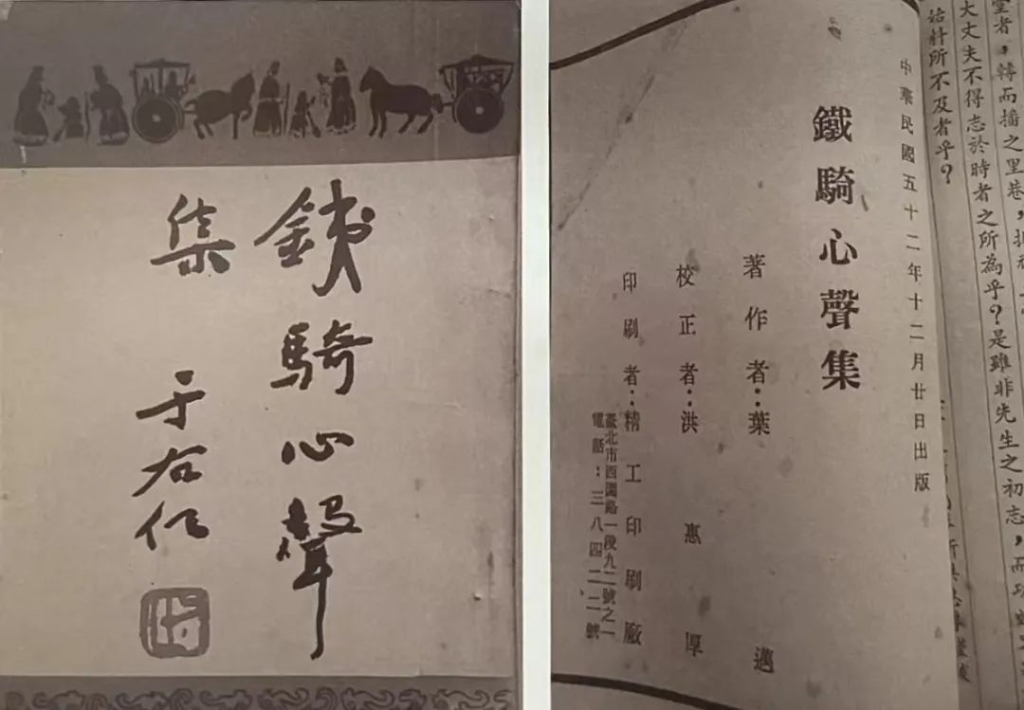 銕騎心聲
集
于右任
者，轉而播之里巷，
大丈夫不得志於時者之所為乎？是雖非先生之初志，而功
所不及者乎？
中華民國五十二年十二月廿日出版
鐵騎心聲集
著作者：葉邁
校正者：洪惠厚
印刷者：精工印刷廠
臺北市西園路一段九二號之一
電話：三八四二二號